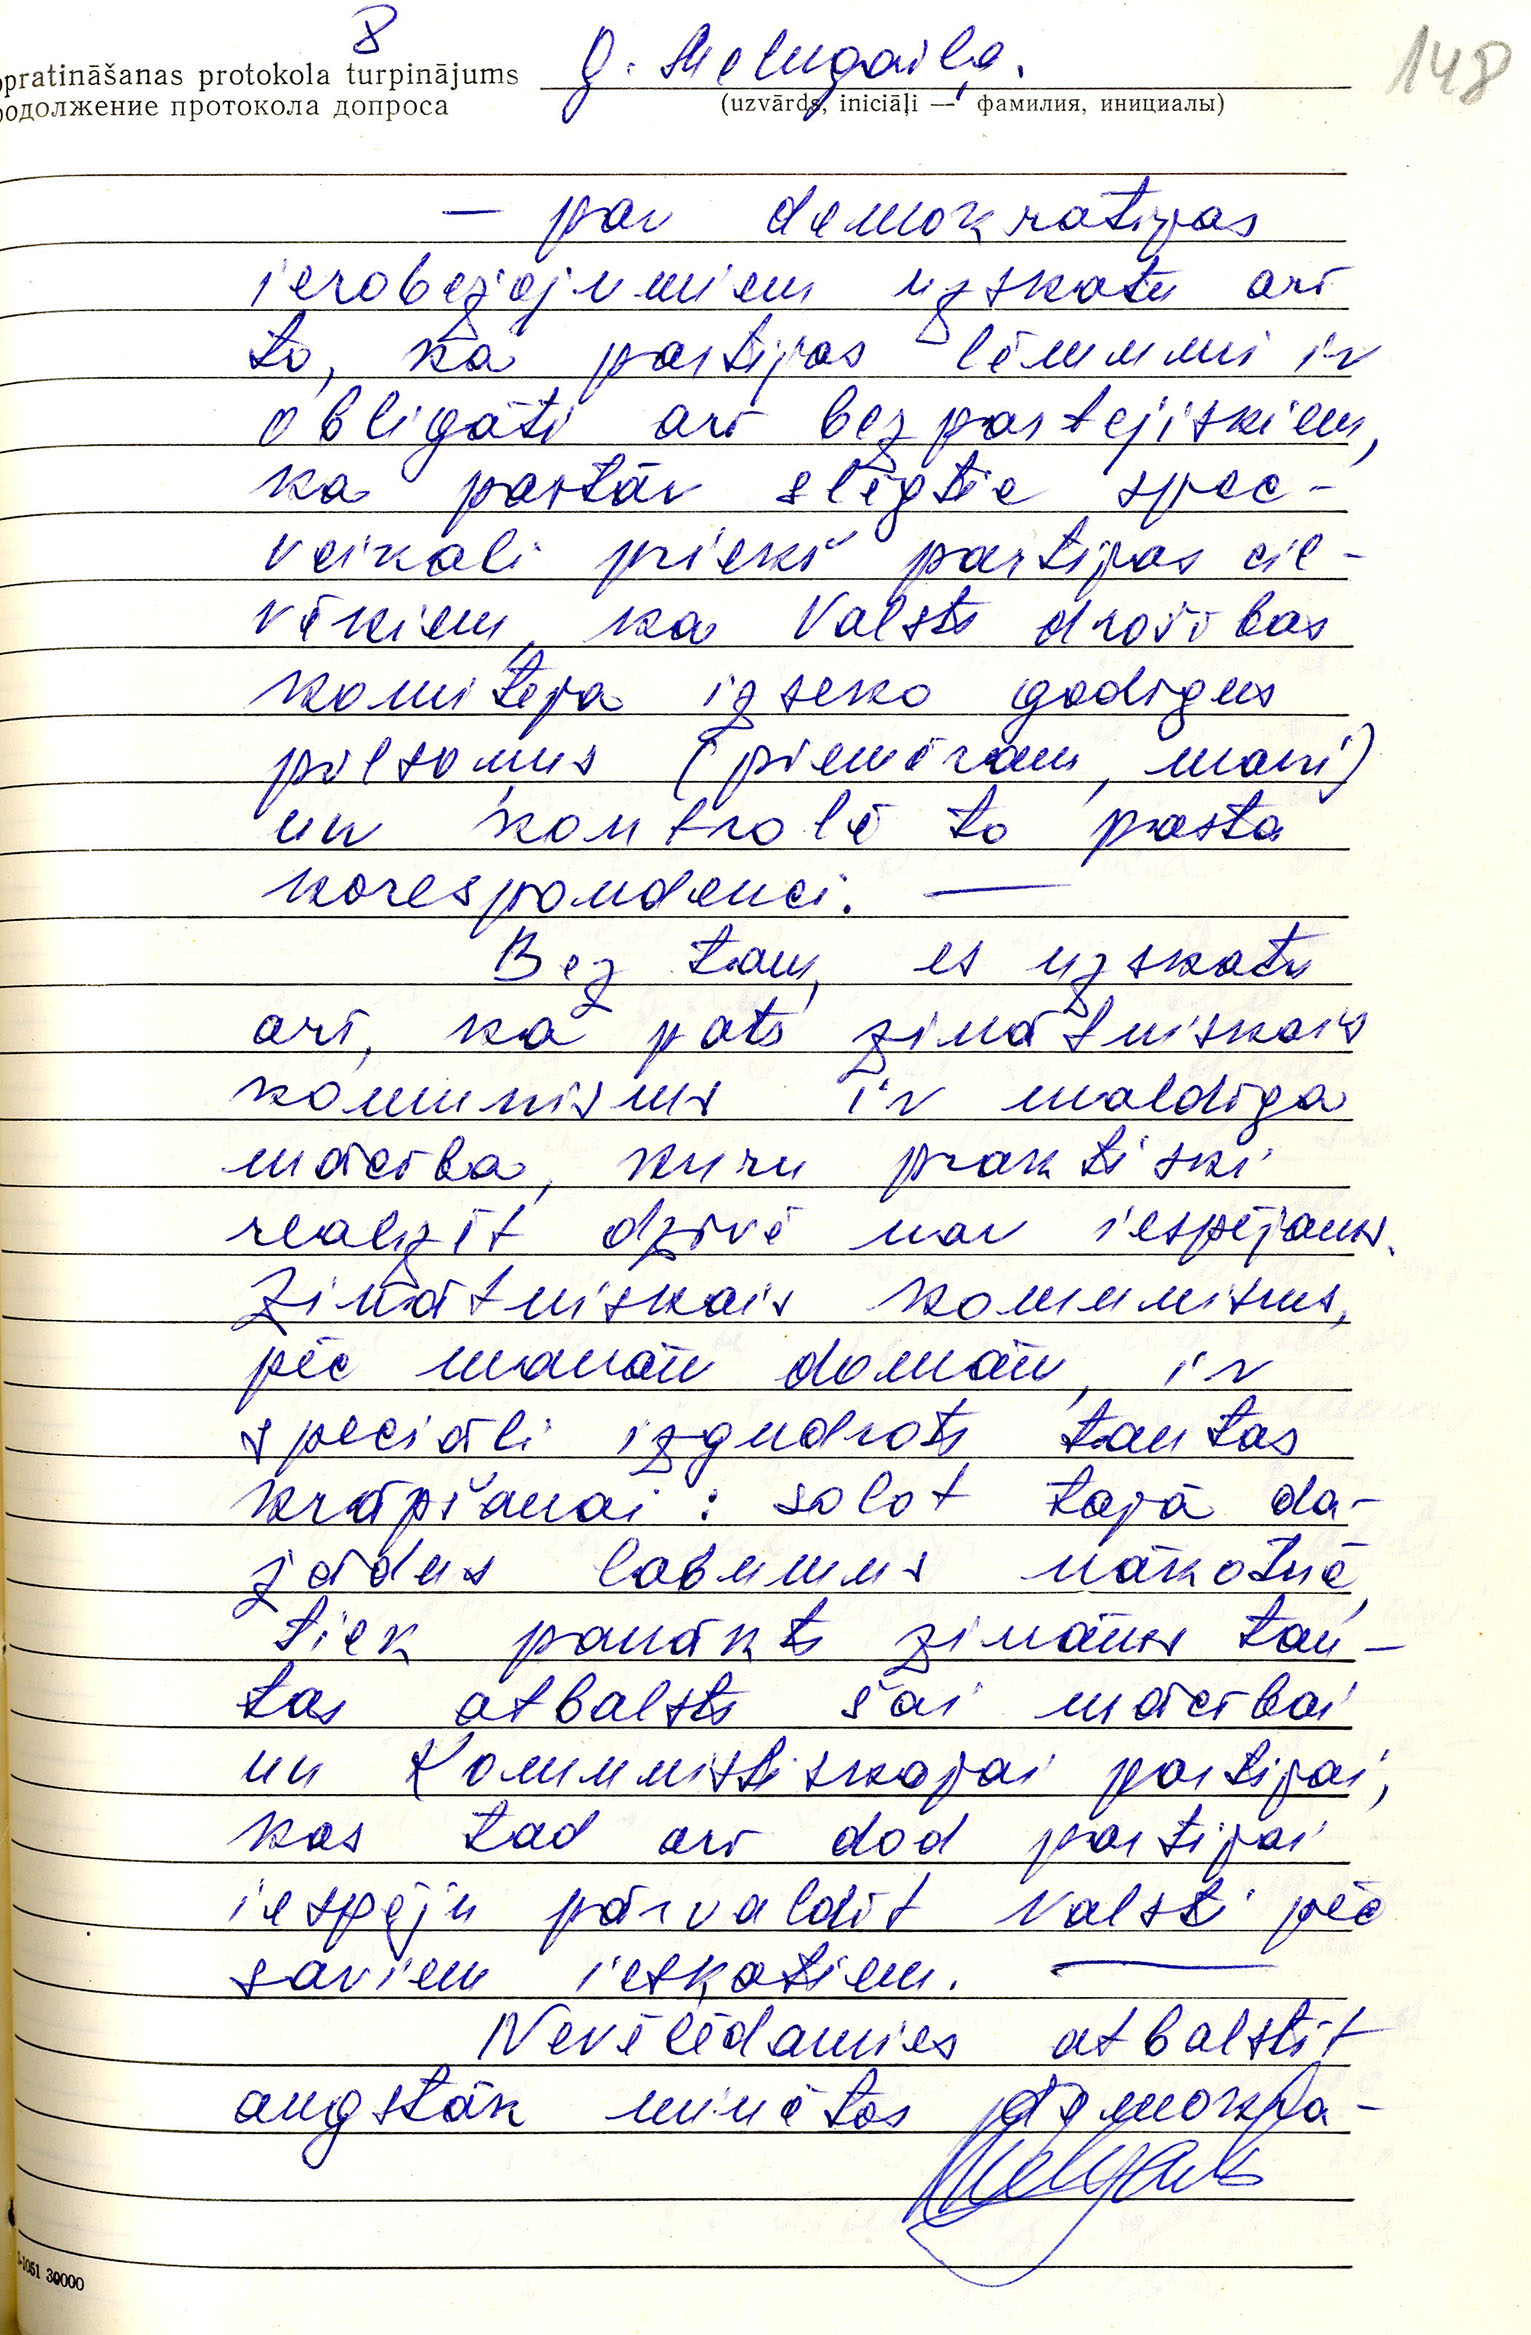 8
148
opratināšanas protokola turpinājums G. Melngaiļa.
родолжение протокола допроса (uzvārds, iniciāļi — фамилия, инициалы)
— par demokratijas
ierobežojumiem uzskatu arī
to, ka partijas lēmumi ir
obligāti arī bezpartejiskiem,
ka pastāv slēgtie spec-
veikali priekš partijas cil-
vēkiem, ka Valsts drošības
komiteja izseko godīgus
pilsoņus (piemēram, mani)
un kontrolē to pasta
korespondenci. —
Bez tam, es uzskatu
arī, ka pats zinātniskais
komunisms ir maldīga
mācība, kuru praktiski
realizēt dzīvē nav iespējams.
Zinātniskais komunisms,
pēc manām domām, ir
speciāli izgudrots tautas
krāpšanai: solot tajā da-
žādus labumus nākotnē,
tiek panākts zināms tau-
tas atbalsts šai mācībai
un Komunistiskajai partijai,
kas tad arī dod partijai
iespēju pārvaldīt valsti pēc
saviem ieskatiem. —
Nevēlēdamies atbalstīt
augstāk minētos demokra-
-1051 30000